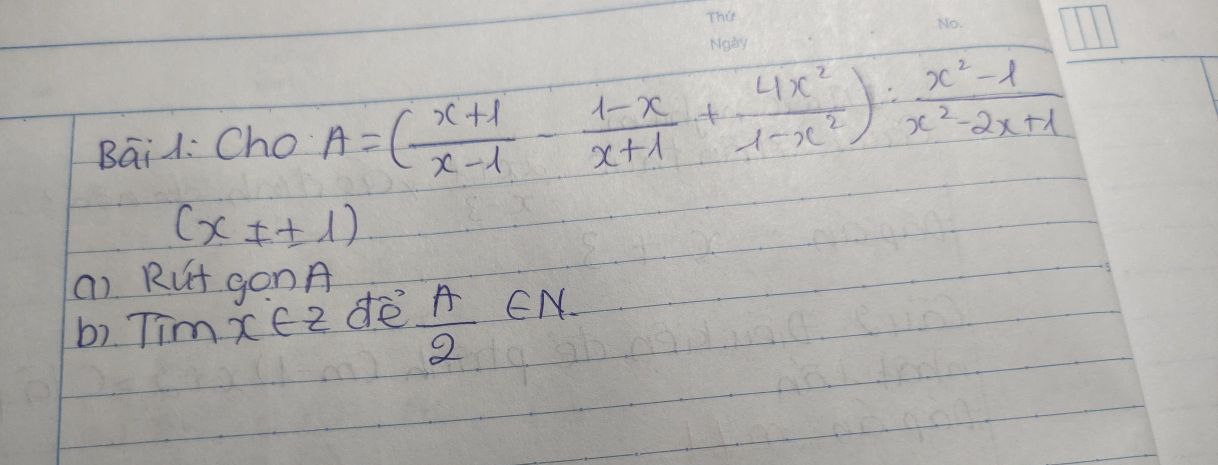 Thứ
Ngày
No.
Bài 1: Cho A = (\frac{x+1}{x-1} - \frac{1-x}{x+1} + \frac{4x^2}{1-x^2}) : \frac{x^2-1}{x^2-2x+1}
(x ≠ ± 1)
a) Rút gọn A
b) Tìm x ∈ Z để \frac{A}{2} ∈ N.